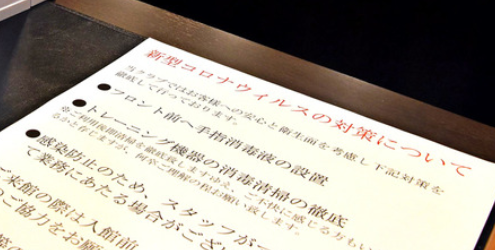 新型コロナウイルスの対策について
当クラブではお客様への安心と衛生面を考慮し下記対策を
徹底して行っております。
●フロント前へ手指消毒液の設置
●トレーニング機器の消毒清掃の徹底
※ご利用後都清掃を徹底致しますゆえ、ご不快に感じる方もい
るかと存じますが、何卒ご理解の程お願い致します。
●感染防止のため、スタッフが
て業務にあたる場合がござ
ご来館の際は入館前
ご協力をお願